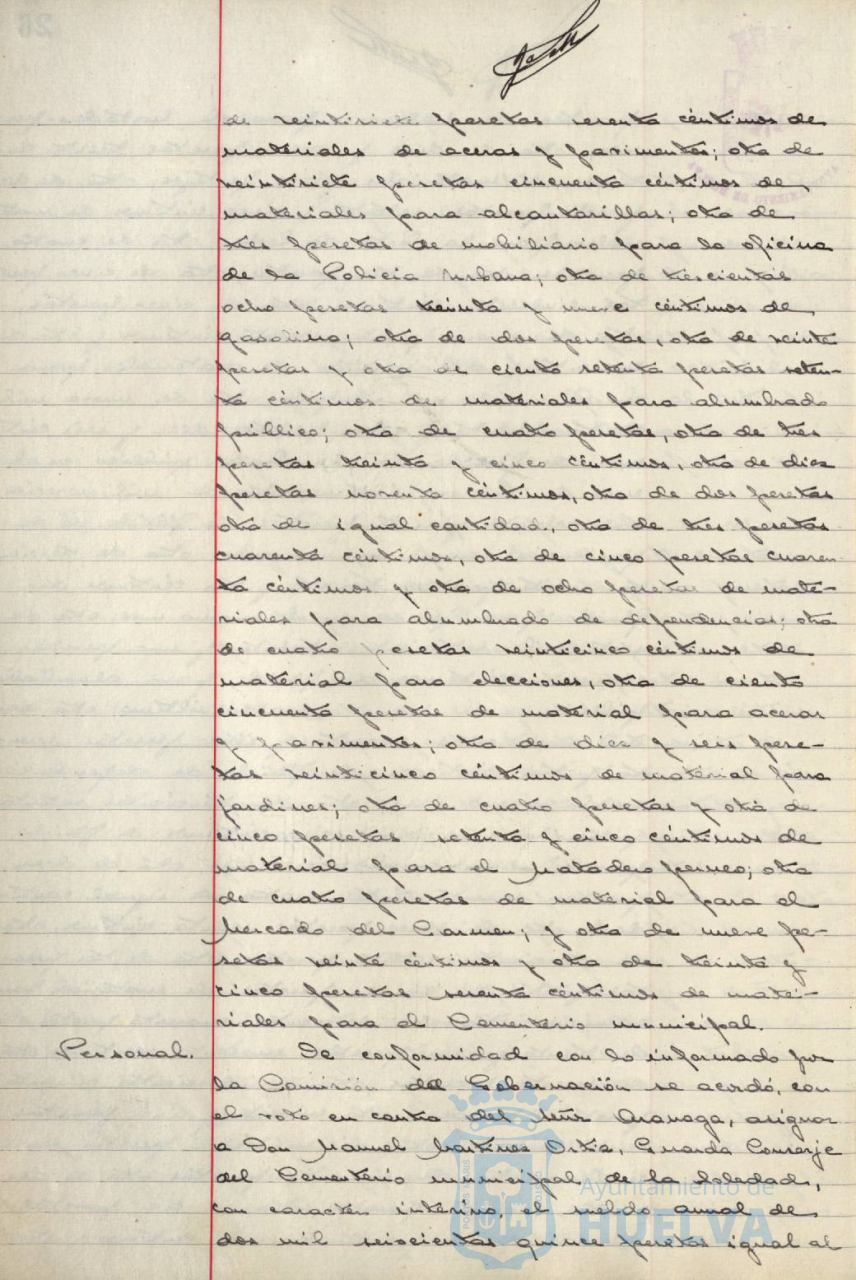 de veintisiete pesetas sesenta céntimos de
materiales de aceras y pavimentos; otra de
veintisiete pesetas cincuenta céntimos de
materiales para alcantarillas; otra de
tres pesetas de mobiliario para la oficina
de la Policia Urbana; otra de trescientas
ocho pesetas treinta y nueve céntimos de
gasolina; otra de dos pesetas, otra de veinte
pesetas y otra de ciento setenta pesetas seten-
ta céntimos de materiales para alumbrado
público; otra de cuatro pesetas, otra de tres
pesetas treinta y cinco céntimos, otra de diez
pesetas noventa céntimos, otra de dos pesetas
otra de igual cantidad, otra de tres pesetas
cuarenta céntimos, otra de cinco pesetas cuaren-
ta céntimos y otra de ocho pesetas de mate-
riales para alumbrado de dependencias; otra
de cuatro pesetas veinticinco céntimos de
material para elecciones, otra de ciento
cincuenta pesetas de material para aceras
y pavimentos; otra de diez y seis pese-
tas veinticinco céntimos de material para
jardines; otra de cuatro pesetas y otra de
cinco pesetas setenta y cinco céntimos de
material para el Matadero perneo; otra
de cuatro pesetas de material para el
Mercado del Carmen; y otra de nueve pe-
setas veinte céntimos y otra de treinta y
cinco pesetas sesenta céntimos de mate-
riales para el Cementerio municipal.
Personal. De conformidad con lo informado por
la Comisión de Gobernación se acordó, con
el voto en contra del señor Aranaga, asignar
a Don Manuel Martinez Ortiz, Guarda Conserje
del Cementerio municipal de la Soledad,
con carácter interino, el sueldo anual de
dos mil seiscientas quince pesetas igual al
Ayuntamiento de
HUELVA